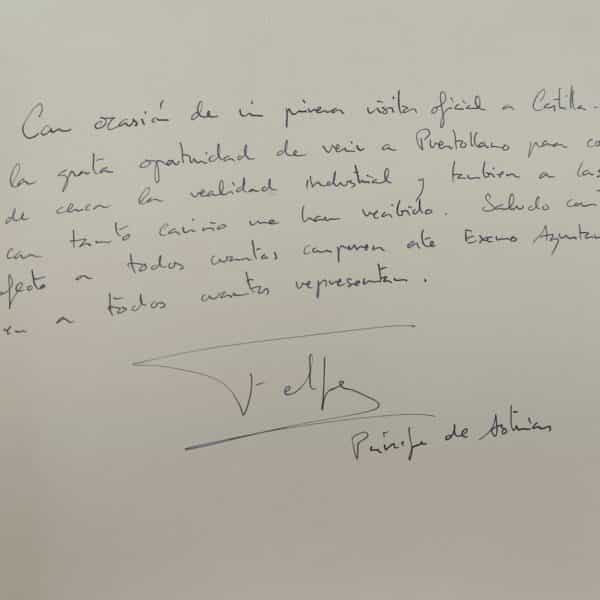 Con ocasión de mi primera visita oficial a Castilla-
la grata oportunidad de venir a Puertollano para co
de cerca la realidad industrial y tambien a las
con tanto cariño me han recibido. Saludo con
afecto a todos cuantos componen este Excmo Ayuntam
en a todos cuantos representan.
Felipe
Príncipe de Asturias